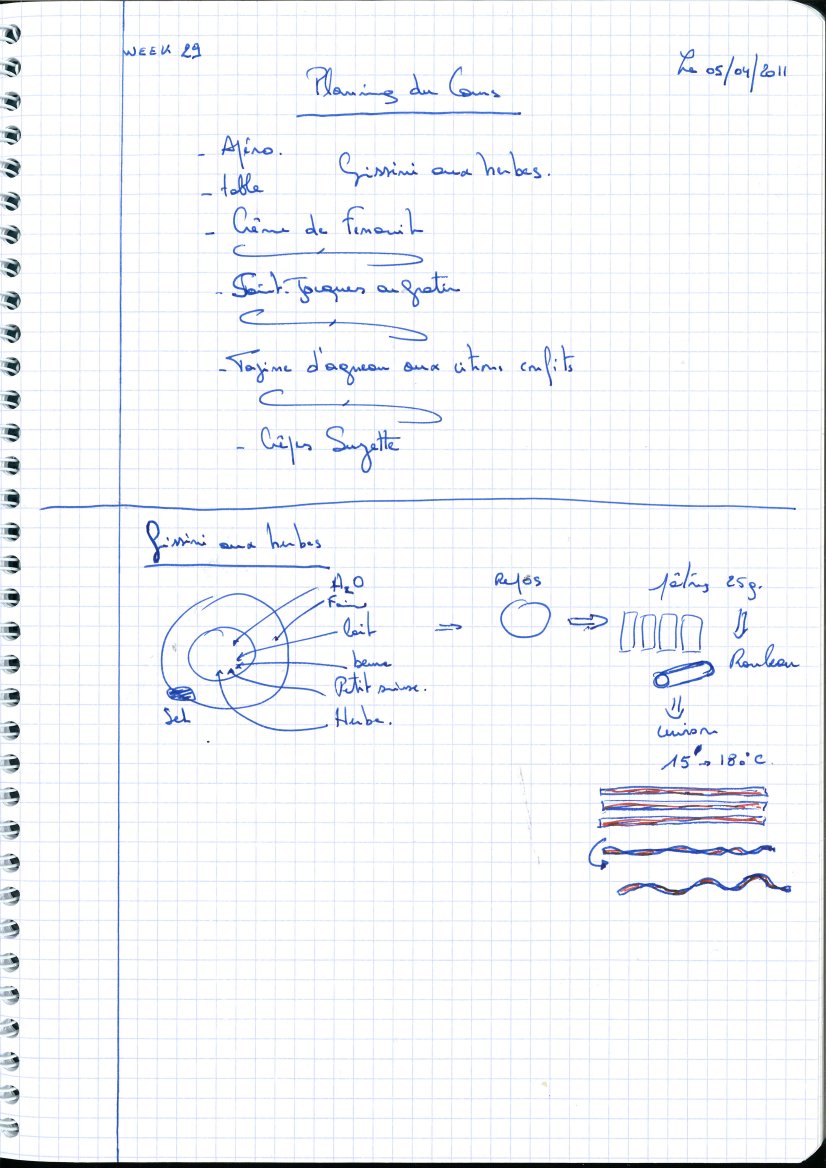 WEEK 29
Le 05/04/2011
Planning du Cours
- Apéro.
Gissini aux herbes.
- table
- Crème de Fenouil
- Saint-Jacques au gratin
- Tajine d'agneau aux citrons confits
- Crêpes Suzette
Gissini aux herbes
H2O
Farine
lait
beurre
Petit suisse.
Herbe.
Sel
⇒
Repos
⇒
pâtons 25g.
Rouleau
cuisson
15' → 180°C.